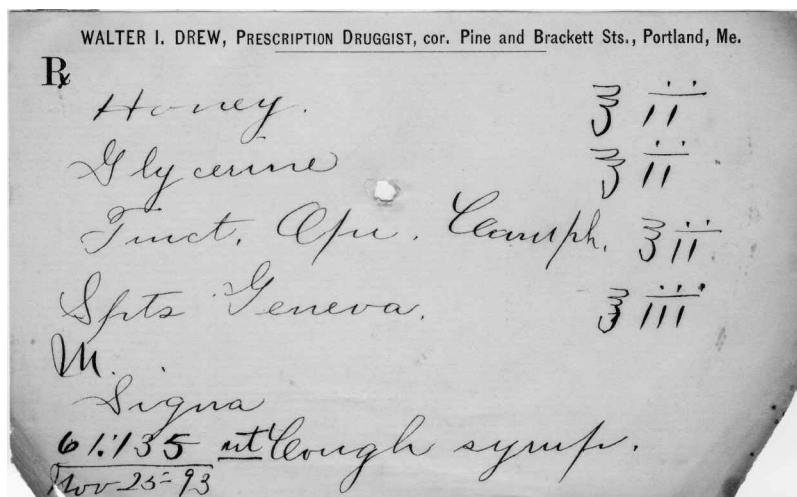 WALTER I. DREW, PRESCRIPTION DRUGGIST, cor. Pine and Brackett Sts., Portland, Me.
℞
Honey. ℥ ii
Glycerine ℥ ii
Tinct. Opii. Camph. ʒ ii
Spts Geneva. ℥ iii
M.
Signa
61:135 ut Cough syrup.
Nov 25 = 93